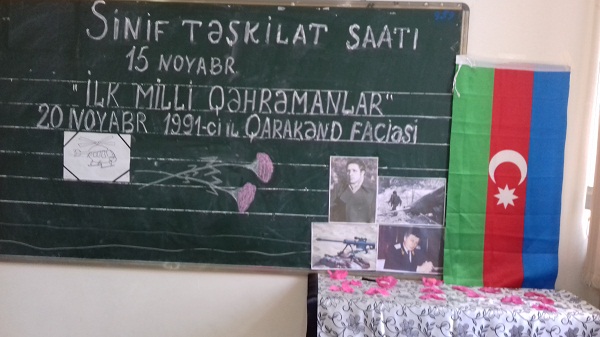 SINIF TƏŞKİLAT SAATI
15 NOYABR
"İLK MİLLİ QƏHRƏMANLAR"
20 NOYABR 1991-ci il QARAKƏND FACİƏSİ